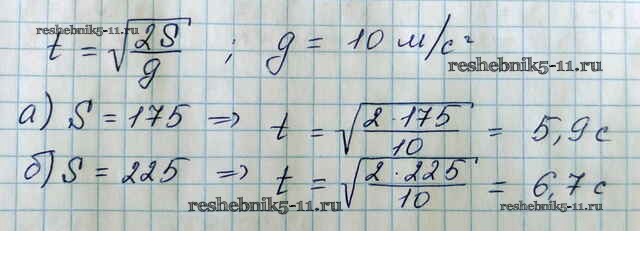 reshebnik5-11.ru
t = √(2S/g) ; g = 10 м/с²
reshebnik5-11.ru
а) S = 175 => t = √(2·175/10) = 5,9 с
б) S = 225 => t = √(2·225/10) = 6,7 с
reshebnik5-11.ru reshebnik5-11.ru